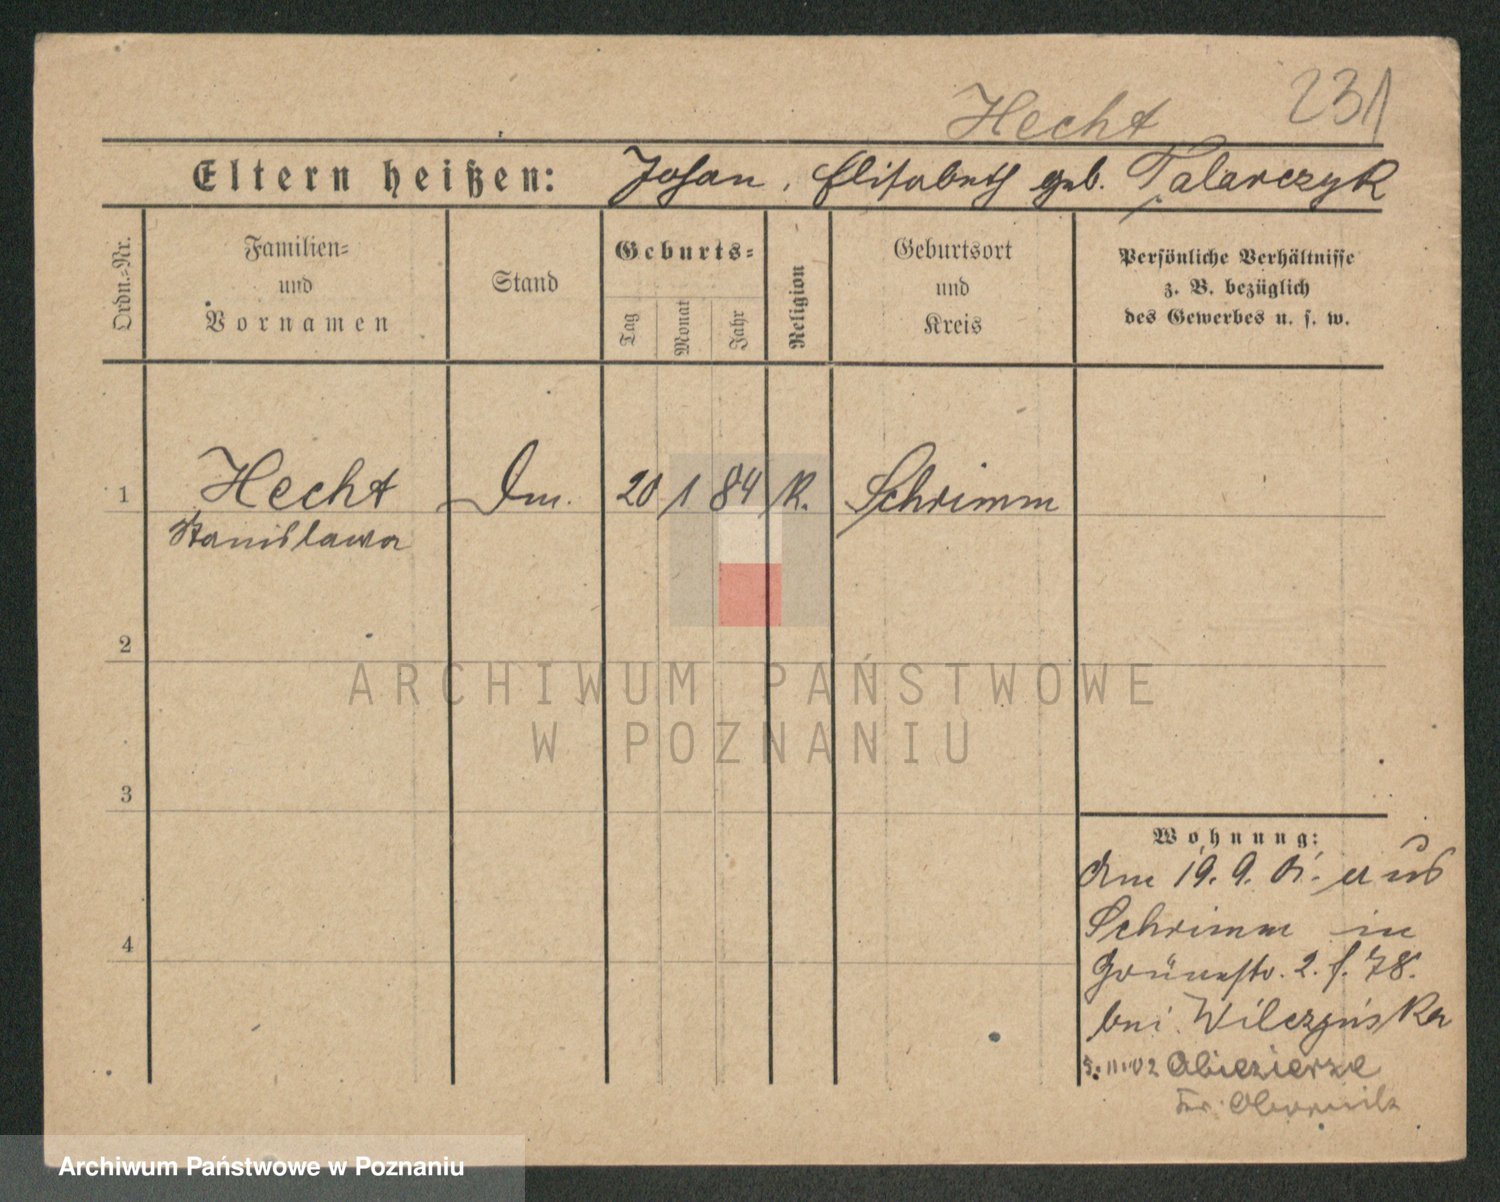 Hecht 231
Eltern heißen: Johan, Elisabeth geb. Talarczyk
Ordn.-Nr.
Familien-
und
Vornamen
Stand
Geburts-
Tag
Monat
Jahr
Religion
Geburtsort
und
Kreis
Persönliche Verhältnisse
z. B. bezüglich
des Gewerbes u. s. w.
1 Hecht 20 1 84 K. Schrimm
Stanislawa
2
3
4
ARCHIWUM PAŃSTWOWE
W POZNANIU
Wohnung:
19. 9. 01. aus
Schrimm in
Grünestr. 2. 78.
bei Wilczyńska
5.11.02 Obiezierze
Kr. Obornik
Archiwum Państwowe w Poznaniu